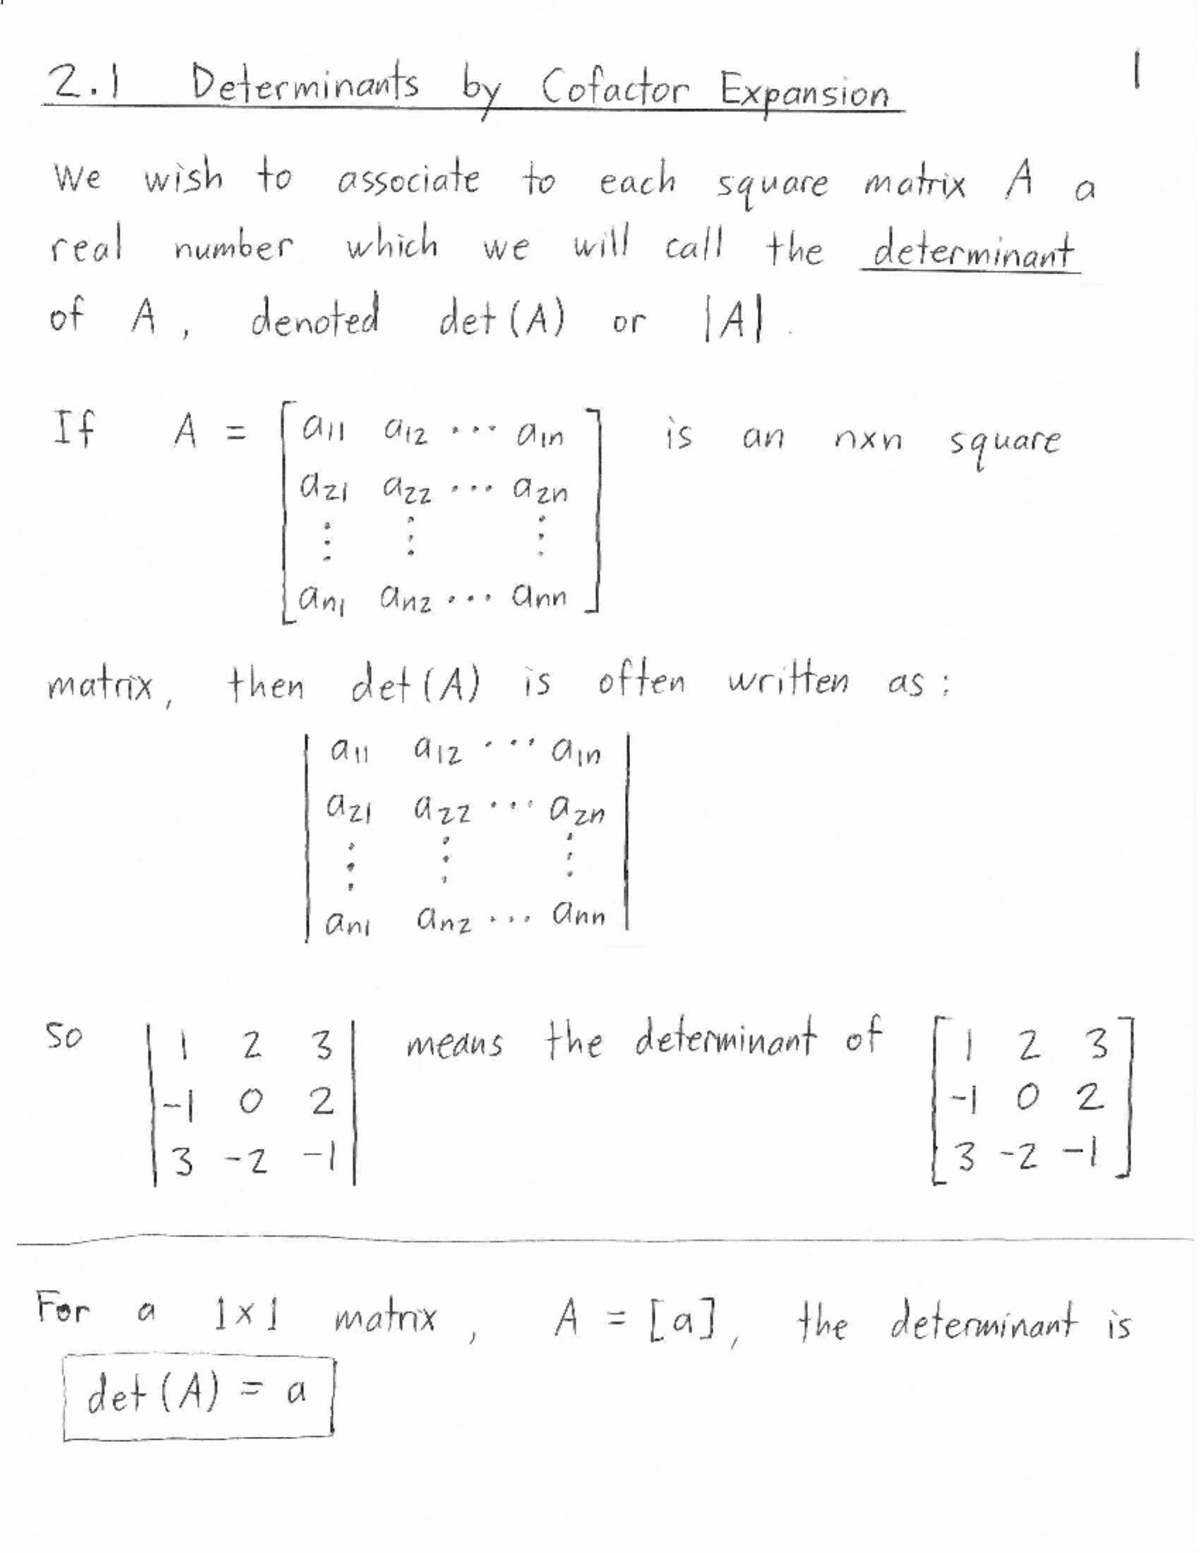 1
2.1 Determinants by Cofactor Expansion
We wish to associate to each square matrix A a
real number which we will call the determinant
of A, denoted det(A) or |A|.
If A = [a11 a12 ... a1n] is an nxn square
a21 a22 ... a2n
⋮ ⋮ ⋮
an1 an2 ... ann
matrix, then det(A) is often written as:
a11 a12 ... a1n
a21 a22 ... a2n
⋮ ⋮ ⋮
an1 an2 ... ann
so | 1 2 3 | means the determinant of [ 1 2 3 ]
-1 0 2 -1 0 2
3 -2 -1 3 -2 -1
For a 1x1 matrix, A = [a], the determinant is
det(A) = a